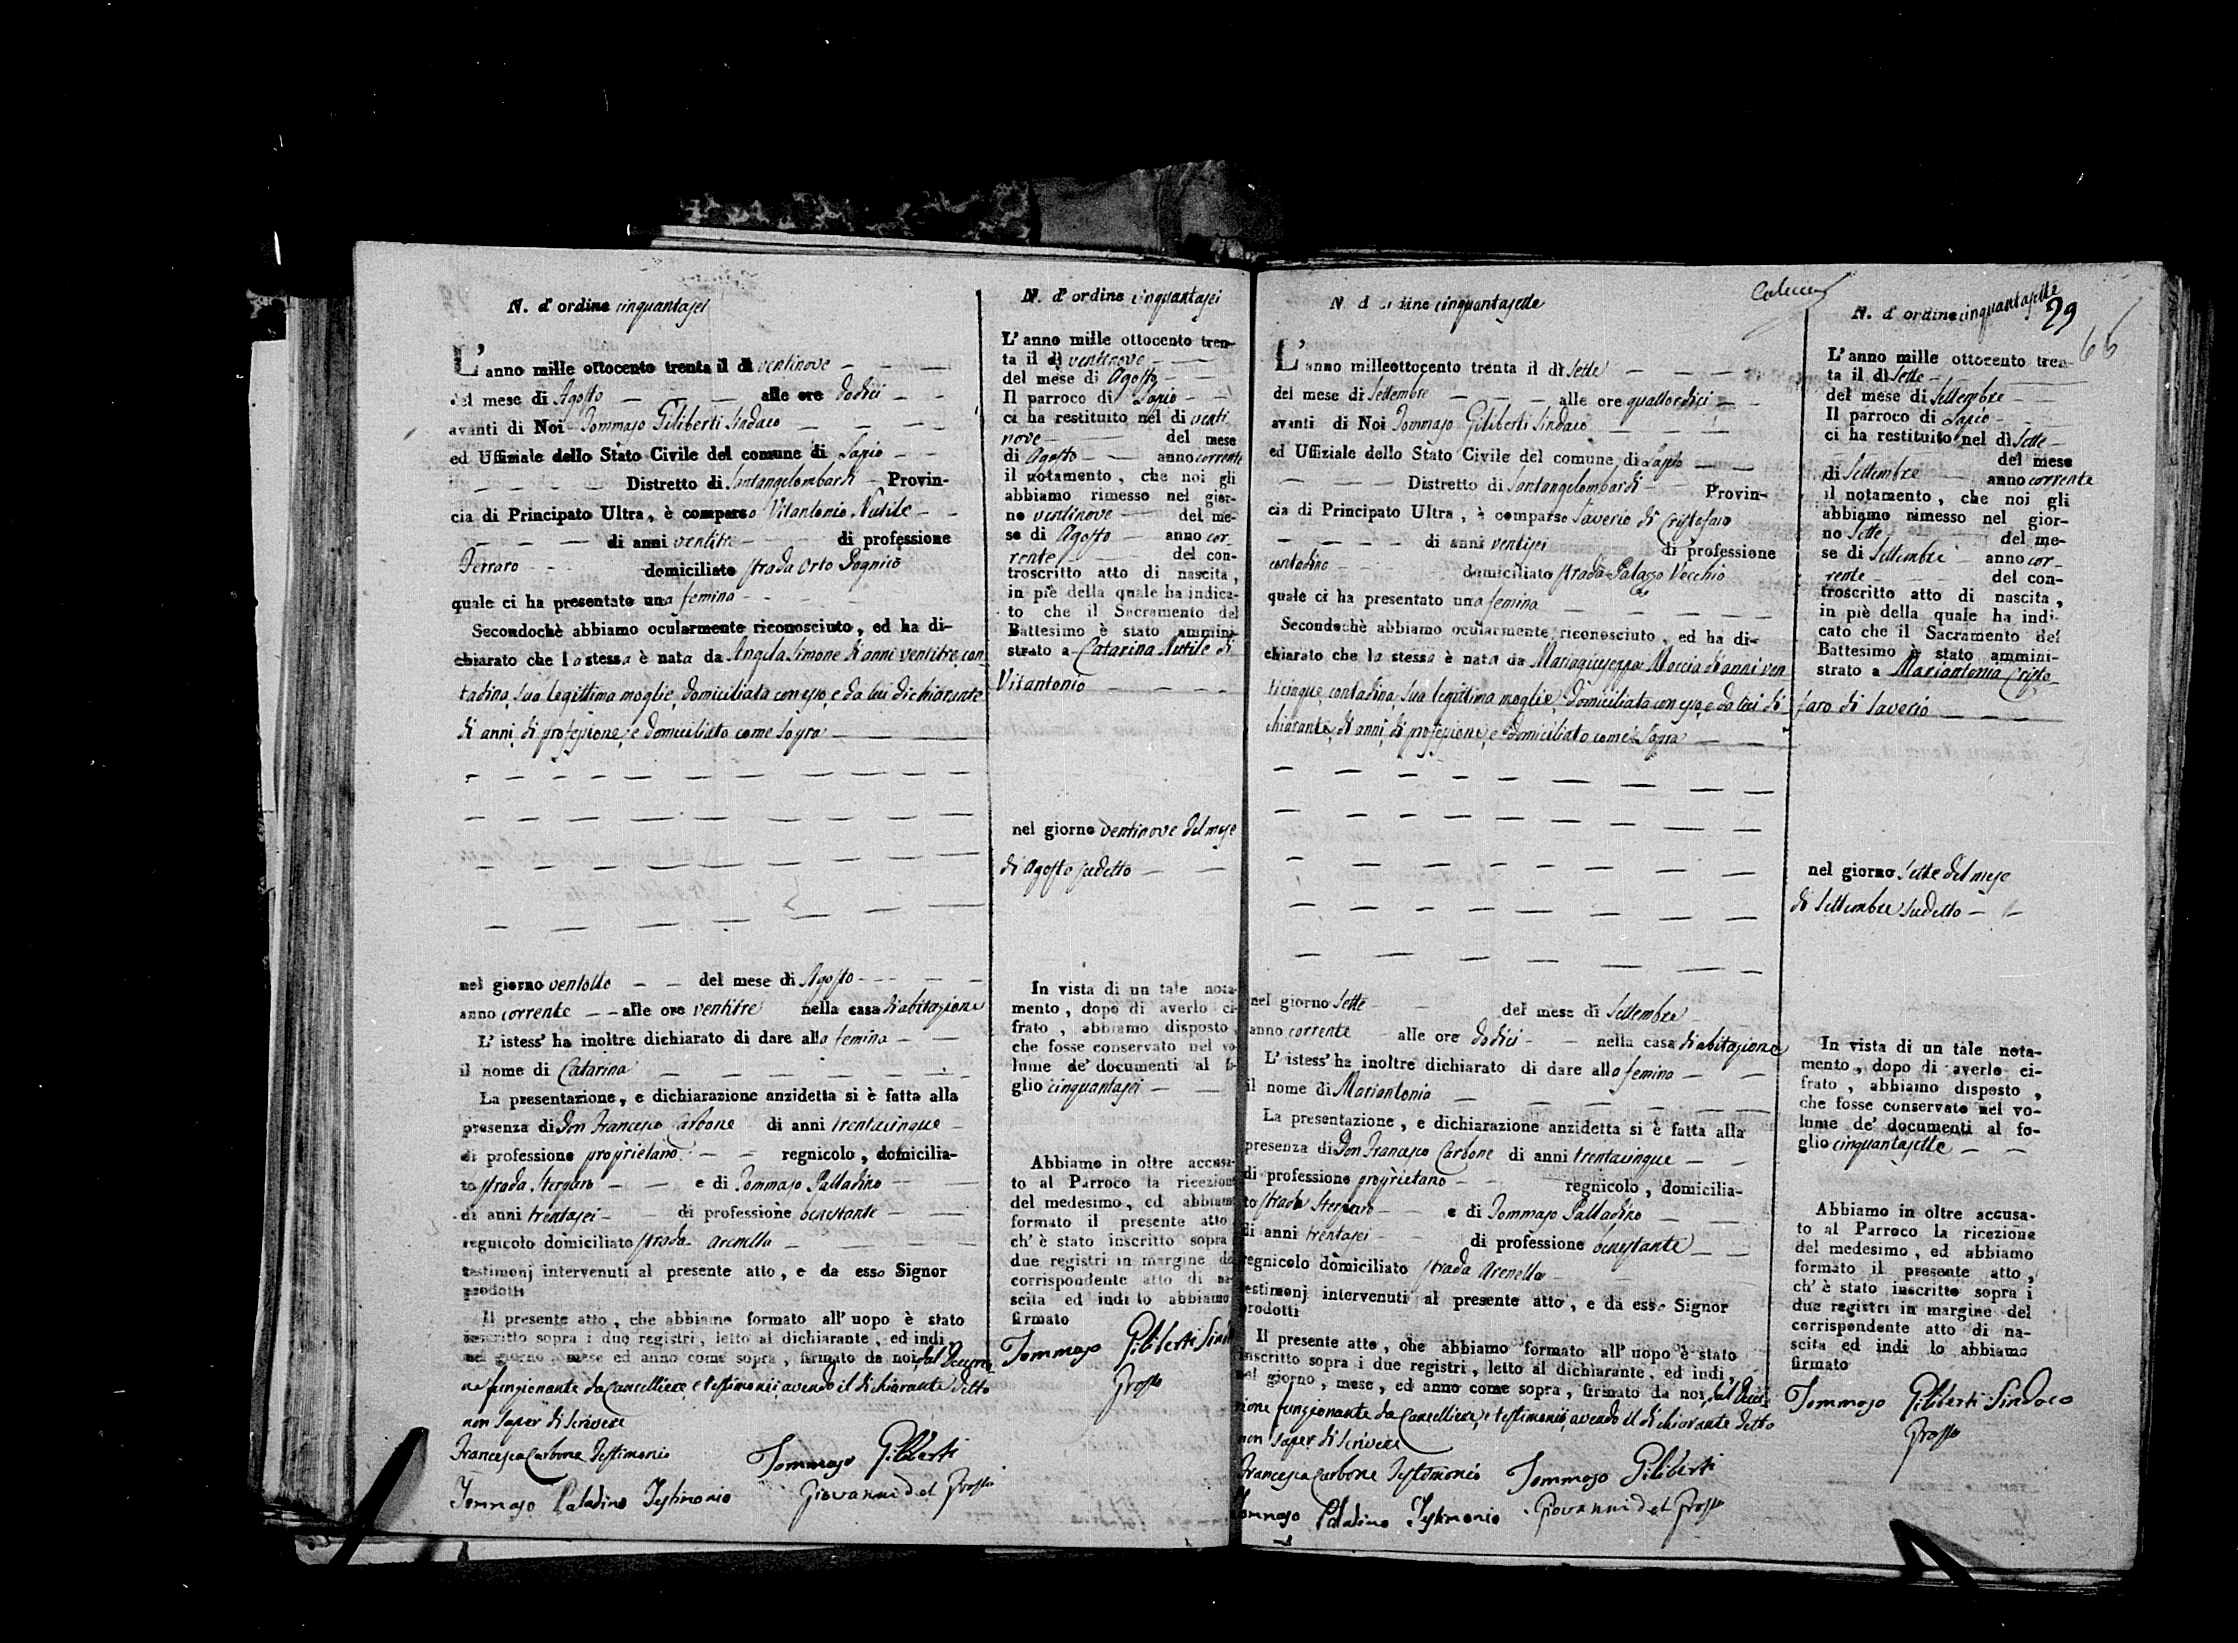 N. d' ordine cinquantasei
L' anno mille ottocento trenta il di ventinove
del mese di Agosto alle ore dodici
avanti di Noi Tommaso Giliberti Sindaco
ed Uffiziale dello Stato Civile del comune di Lapio
Distretto di Santangelombardi Provin-
cia di Principato Ultra, è comparso Vitantonio Nutile
di anni ventitre di professione
Ferraro domiciliato strada Orto
quale ci ha presentato una femina
Secondochè abbiamo ocularmente riconosciuto, ed ha di-
chiarato che la stessa è nata da Angela Simone di anni ventitre con
tadina, sua legittima moglie, domiciliata con esso, e da lui dichiarante
di anni, di professione, e domiciliato come sopra
nel giorno ventotto del mese di Agosto
anno corrente alle ore ventitre nella casa di abitazione
L' istess' ha inoltre dichiarato di dare alla femina
il nome di Catarina
La presentazione, e dichiarazione anzidetta si è fatta alla
presenza di Don Francesco Carbone di anni trentacinque
di professione proprietario regnicolo, domicilia-
to strada e di Tommaso Palladino
di anni trentasei di professione benestante
regnicolo domiciliato strada Arenella
testimonj intervenuti al presente atto, e da esso Signor
prodotti
Il presente atto, che abbiamo formato all' uopo è stato
inscritto sopra i due registri, letto al dichiarante, ed indi
nel giorno, mese ed anno come sopra, firmato da noi, dal Decurio
ne funzionante da Cancelliere, e testimonii, avendo il dichiarante detto
non saper di scrivere
Francesco Carbone Testimonio Tommaso Giliberti
Tommaso Paladino Testimonio Giovanni del Grosso
N. d' ordine cinquantasei
L' anno mille ottocento tren-
ta il di ventinove
del mese di Agosto
Il parroco di Lapio
ci ha restituito nel di venti
nove del mese
di Agosto anno corrente
il notamento, che noi gli
abbiamo rimesso nel gior-
no ventinove del me-
se di Agosto anno cor-
rente del con-
troscritto atto di nascita,
in piè della quale ha indica-
to che il Sacramento del
Battesimo è stato ammini-
strato a Catarina Nutile di
Vitantonio
nel giorno ventinove del mese
di Agosto sudetto
In vista di un tale nota-
mento, dopo di averlo ci-
frato, abbiamo disposto
che fosse conservato nel vo-
lume de' documenti al fo-
glio cinquantasei
Abbiamo in oltre accusa-
to al Parroco la ricezione
del medesimo, ed abbiamo
formato il presente atto
ch' è stato inscritto sopra
due registri in margine del
corrispondente atto di na-
scita ed indi lo abbiamo
firmato
Tommaso Giliberti Sindaco
Grosso
N. d' ordine cinquantasette
L' anno milleottocento trenta il dì sette
del mese di Settembre alle ore quattordici
avanti di Noi Tommaso Giliberti Sindaco
ed Uffiziale dello Stato Civile del comune di Lapio
Distretto di Santangelombardi Provin-
cia di Principato Ultra, è comparso Saverio di Cristofaro
di anni ventisei di professione
contadino domiciliato strada Palazzo Vecchio
quale ci ha presentato una femina
Secondochè abbiamo ocularmente riconosciuto, ed ha di-
chiarato che la stessa è nata da Mariagiuseppa Moccia di anni ven
ticinque, contadina, sua legittima moglie, domiciliata con esso, e da lui di
chiarante, di anni, di professione, e domiciliato come sopra
nel giorno sette del mese di Settembre
anno corrente alle ore dodici nella casa di abitazione
L' istess' ha inoltre dichiarato di dare alla femina
il nome di Mariantonia
La presentazione, e dichiarazione anzidetta si è fatta alla
presenza di Don Francesco Carbone di anni trentacinque
di professione proprietario regnicolo, domicilia-
to strada e di Tommaso Palladino
di anni trentasei di professione benestante
regnicolo domiciliato strada Arenella
testimonj intervenuti al presente atto, e da esso Signor
prodotti
Il presente atto, che abbiamo formato all' uopo è stato
inscritto sopra i due registri, letto al dichiarante, ed indi,
nel giorno, mese, ed anno come sopra, firmato da noi, dal Decu
rione funzionante da Cancelliere, e testimonii, avendo il dichiarante detto
non saper di scrivere
Francesco Carbone Testimonio Tommaso Giliberti
Tommaso Paladino Testimonio Giovanni del Grosso
N. d' ordine cinquantasette
29
66
L' anno mille ottocento tren-
ta il dì sette
del mese di Settembre
Il parroco di Lapio
ci ha restituito nel dì sette
del mese
di Settembre anno corrente
il notamento, che noi gli
abbiamo rimesso nel gior-
no sette del me-
se di Settembre anno cor-
rente del con-
troscritto atto di nascita,
in piè della quale ha indi-
cato che il Sacramento del
Battesimo è stato ammini-
strato a Mariantonia Cristo
faro di Saverio
nel giorno sette del mese
di Settembre sudetto
In vista di un tale nota-
mento, dopo di averlo ci-
frato, abbiamo disposto,
che fosse conservato nel vo-
lume de' documenti al fo-
glio cinquantasette
Abbiamo in oltre accusa-
to al Parroco la ricezione
del medesimo, ed abbiamo
formato il presente atto,
ch' è stato inscritto sopra i
due registri in margine del
corrispondente atto di na-
scita ed indi lo abbiamo
firmato
Tommaso Giliberti Sindaco
Grosso